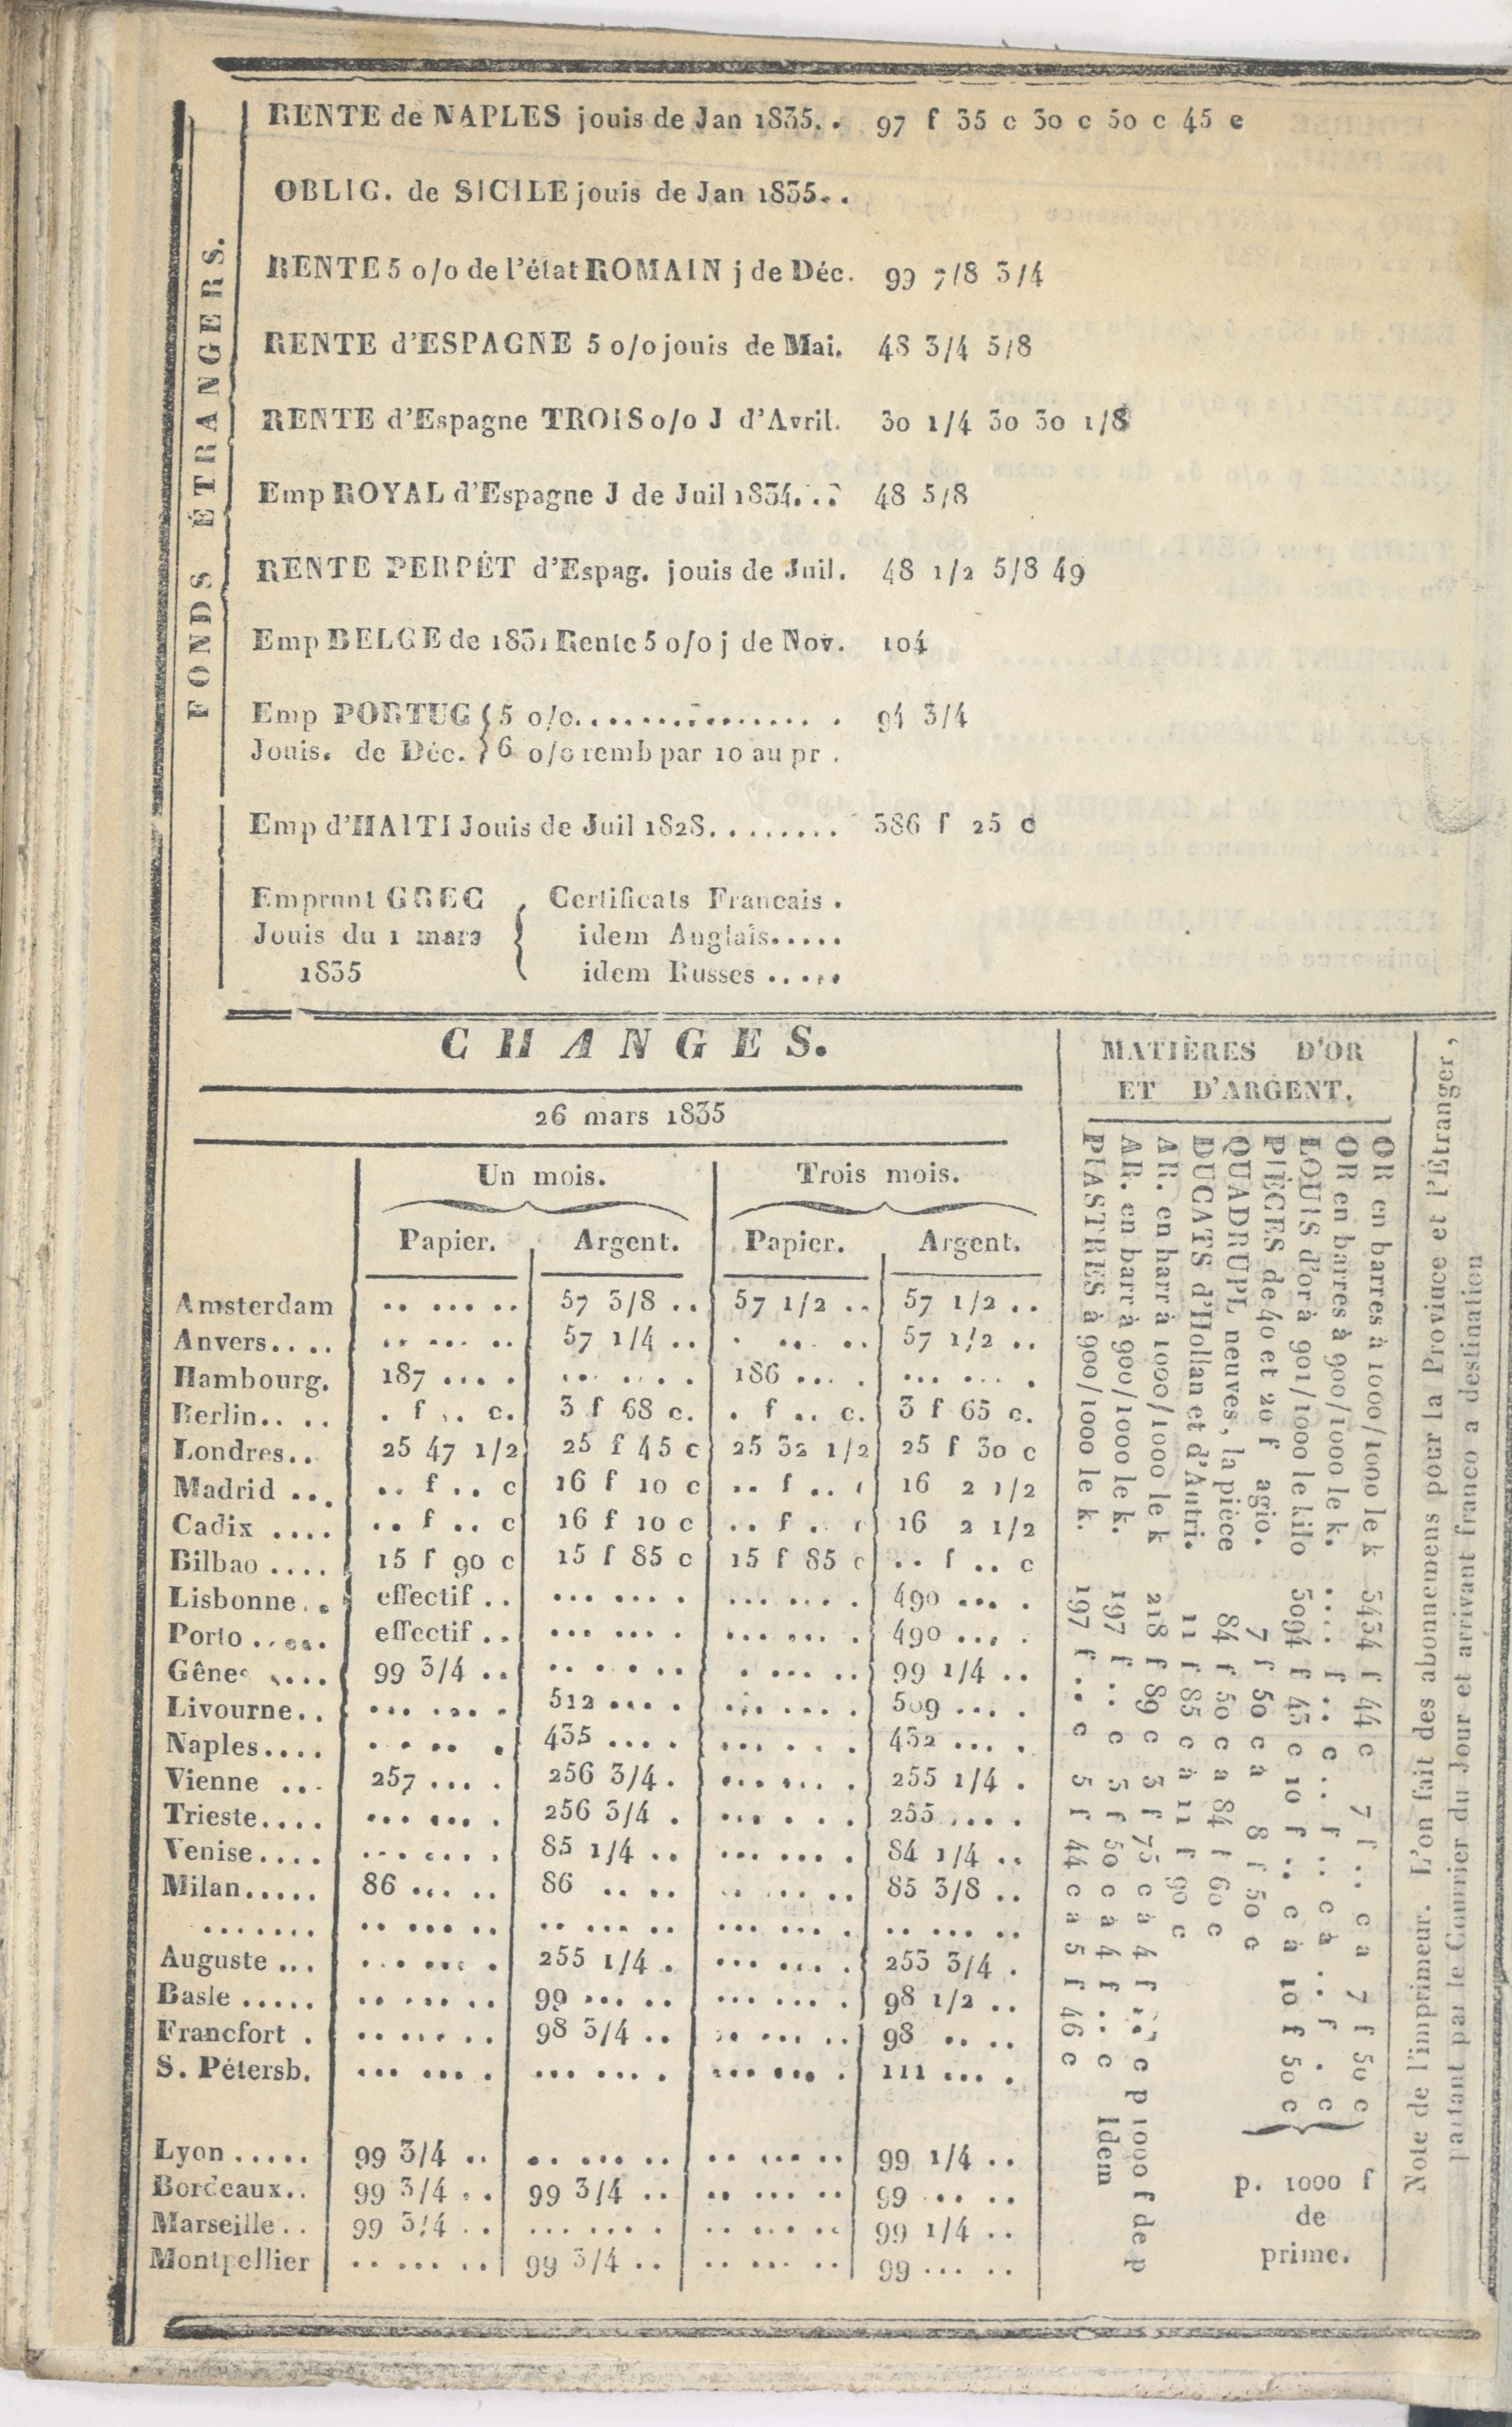 FONDS ÉTRANGERS.
RENTE de NAPLES jouis de Jan 1835. . 97 f 35 c 30 c 50 c 45 e
OBLIG. de SICILE jouis de Jan 1835. .
RENTE 5 o/o de l'état ROMAIN j de Déc. 99 7/8 3/4
RENTE d'ESPAGNE 5 o/o jouis de Mai. 48 3/4 5/8
RENTE d'Espagne TROIS o/o J d'Avril. 30 1/4 30 30 1/8
Emp ROYAL d'Espagne J de Juil 1834. . . 48 5/8
RENTE PERPÉT d'Espag. jouis de Juil. 48 1/2 5/8 49
Emp BELGE de 1831 Rente 5 o/o j de Nov. 104
Emp PORTUG { 5 o/o. . . . . . . . . . . . . . . . 94 3/4
Jouis. de Déc. } 6 o/o remb par 10 au pr .
Emp d'HAITI Jouis de Juil 1828. . . . . . . . 386 f 25 c
Emprunt GREC { Certificats Francais .
Jouis du 1 mars idem Anglais. . . . .
1835 idem Russes . . . . .
CHANGES.
26 mars 1835
Un mois. Trois mois.
Papier. Argent. Papier. Argent.
Amsterdam .. ... .. 57 3/8 .. 57 1/2 .. 57 1/2 ..
Anvers.. .. .. ... .. 57 1/4 .. . ... .. 57 1/2 ..
Hambourg. 187 .... . ... ... . 186 ... . ... ... .
Berlin.. .. . f .. c. 3 f 68 c. . f .. c. 3 f 65 c.
Londres.. 25 47 1/2 25 f 45 c 25 32 1/2 25 f 30 c
Madrid ... .. f .. c 16 f 10 c .. f .. c 16 2 1/2
Cadix .... .. f .. c 16 f 10 c .. f .. c 16 2 1/2
Bilbao .... 15 f 90 c 15 f 85 c 15 f 85 c .. f .. c
Lisbonne.. effectif .. ... ... . ... ... . 490 ... .
Porto ..... effectif .. ... ... . ... ... . 490 ... .
Gênes .... 99 3/4 .. .. . .. .. . ... .. 99 1/4 ..
Livourne.. ... ... . 512 ... . ... ... . 509 ... .
Naples.... . . .. . 435 ... . ... .. . 432 ... .
Vienne ... 257 ... . 256 3/4 . ... ... . 255 1/4 .
Trieste.... ... ... . 256 3/4 . ... .. . 255 ... .
Venise.... ... ... . 85 1/4 .. ... ... . 84 1/4 ..
Milan..... 86 ... .. 86 .. .. .. ... .. 85 3/8 ..
....... .. ... .. .. ... .. ... ... . .. ... ..
Auguste ... .. ... . 255 1/4 . ... ... . 253 3/4 .
Basle ..... .. ... .. 99 ... .. ... ... . 98 1/2 ..
Francfort . .. ... .. 98 3/4 .. .. ... .. 98 .. ..
S. Pétersb. ... ... . ... ... . ... ... . 111 ... .
Lyon ..... 99 3/4 .. .. ... .. .. ... .. 99 1/4 ..
Bordeaux.. 99 3/4 .. 99 3/4 .. .. ... .. 99 ... ..
Marseille.. 99 3/4 .. ... ... . .. ... .. 99 1/4 ..
Montpellier .. ... .. 99 3/4 .. .. ... .. 99 ... ..
MATIÈRES D'OR
ET D'ARGENT.
OR en barres à 1000/1000 le k 3434 f 44 c 7 f .. c a 7 f 50 c
OR en barres à 900/1000 le k. .... f .. c .. f .. c à .. f . c
LOUIS d'or à 901/1000 le kilo 3094 f 43 c 10 f .. c à 10 f 50 c
PIÈCES de 40 et 20 f agio. 7 f 50 c à 8 f 50 c
QUADRUPL neuves, la pièce 84 f 50 c a 84 f 60 c
DUCATS d'Hollan et d'Autri. 11 f 85 c à 11 f 90 c
AR. en barr à 1000/1000 le k 218 f 89 c 3 f 75 c à 4 f .. c p 1000 f de p
AR. en barr à 900/1000 le k. 197 f .. c 5 f 50 c à 4 f .. c Idem
PIASTRES à 900/1000 le k. 197 f .. c 5 f 44 c a 5 f 46 c
p. 1000 f
de
prime.
Note de l'imprimeur. L'on fait des abonnemens pour la Province et l'Étranger,
partant par le Courrier du Jour et arrivant franco a destination